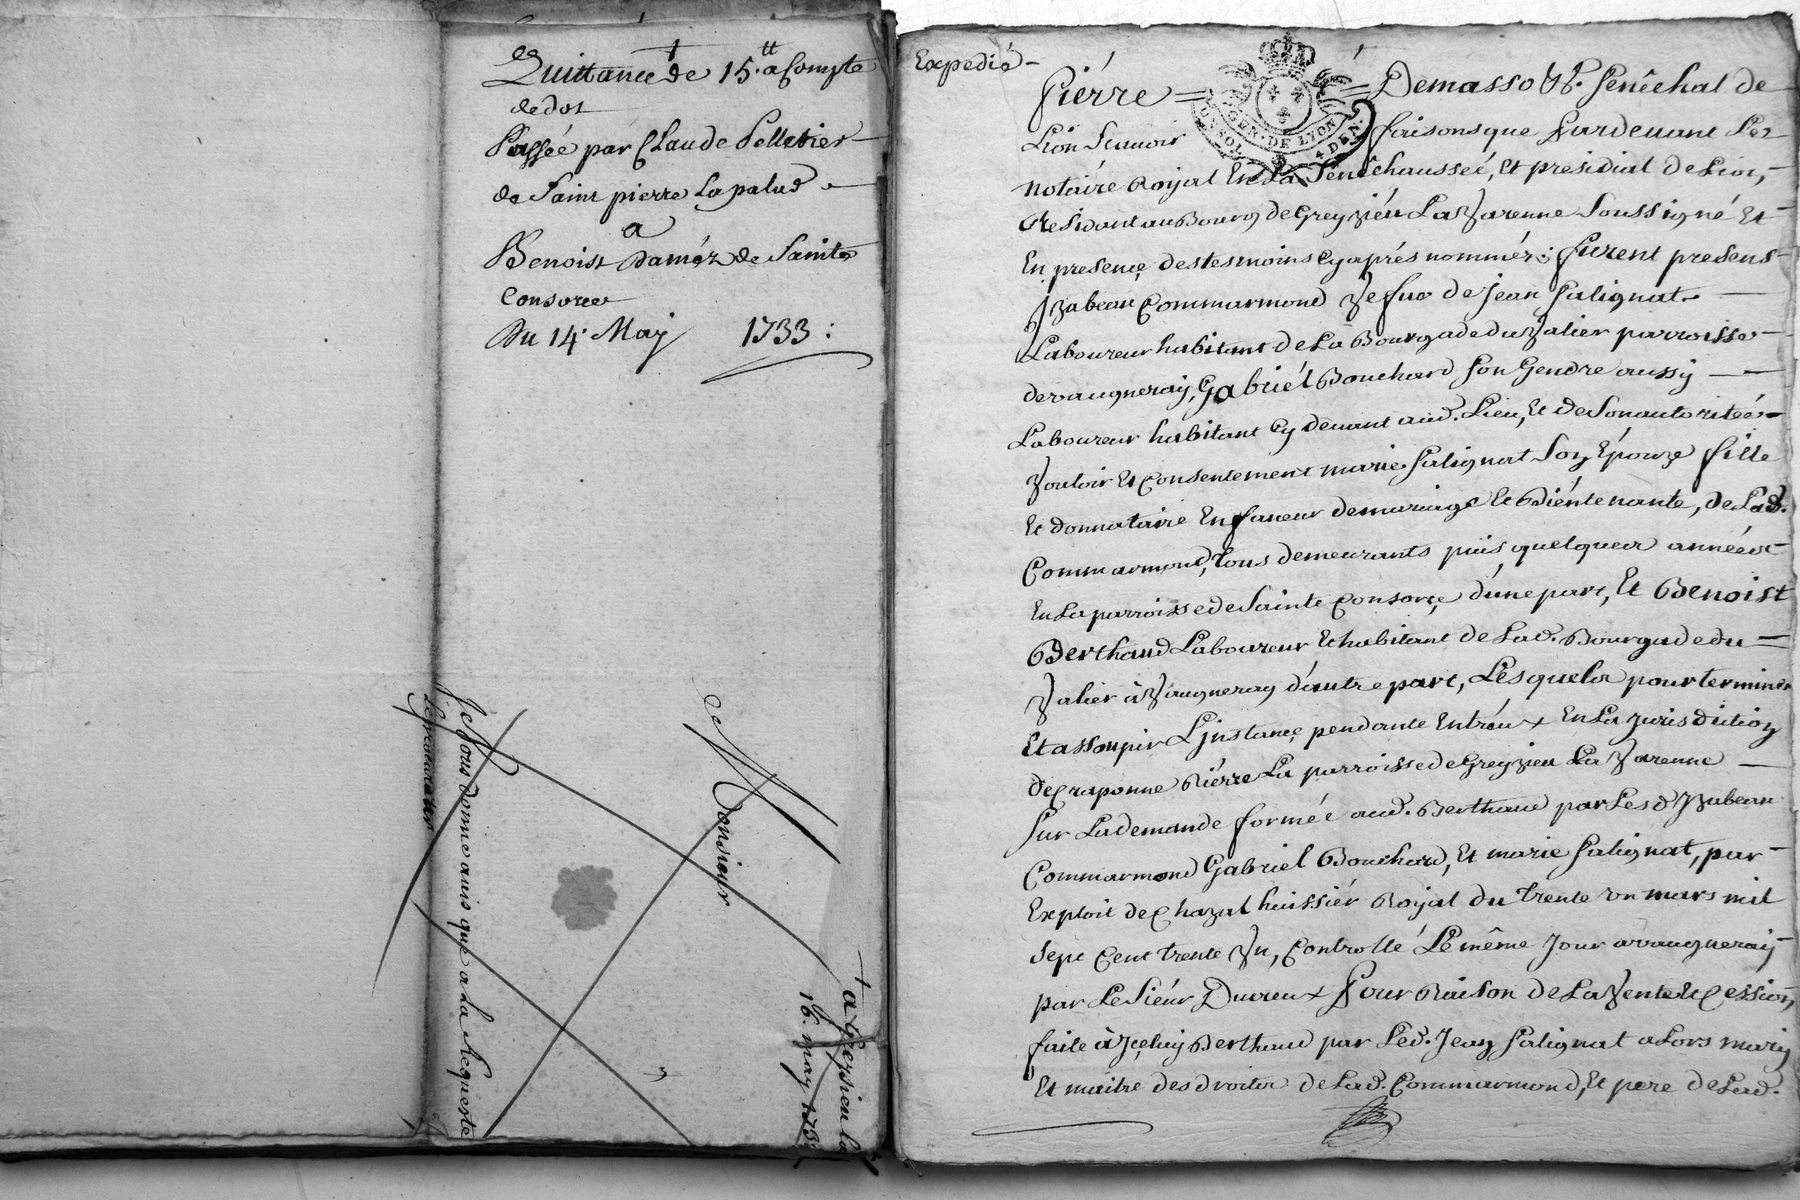 Quittance de 15.tt a Compte
de dot
Passée par Claude Pelletier
de Saint pierre Lapalud
a
Benoist Daméz de Sainte
Consorce
Du 14. May 1733:
Monsieur
Je Vous donne avis que a la Requeste
a Greysieu la
16. may 173
Expedié
Piérre = = Demasso &c. Senêchal de
GEN. DE LYON
UN SOL 4 DEN.
Lion Scavoir faisons que Pardevant Le
notaire Royal En La Sénéchausseé, Et presidial de Lion,
Residant au Bourg de Greyziéu La Varenne Soussigné Et
En presençe des tesmoins Cy aprés nommér: furent presens
Yzabeau Commarmond Vefue de Jean Salignat
Laboureur habitant de La Bourgade du Valier parroisse
de vaugneray, Gabriél Bouchard Son Gendre aussy
Laboureur habitant Cy devant aud. Lieu, Et de Son autoriteé
Vouloir Et Consentement marie Salignat Son Épouze fille
Et donnataire En faveur de mariage Et Biéntenante, de Lad.
Commarmond, tous demeurants puis quelques annéés
En La parroisse de Sainte Consorçe d'úne part, Et Benoist
Berthaud Laboureur Et habitant de Lad. Bourgade du
Valier à Vaugneray d'autre part, Lésquels pour terminer
Et assoupir L'jnstançe pendante Entréux En La Jurisdition
de Craponne Riérre La parroisse de Greyzieu La Varenne
Sur La demande formée aud. Berthaud par Lesd Yzabeau
Commarmond Gabriel Bouchard, Et marie Salignat, par
Exploit de Chazal huissiér Royal du trente un mars mil
Sept Cent trente Un, Controllé Le même Jour a vaugneray
par Le Siéur Ducreux Pour Raison de La Vente Et Cession,
faite à Jçeluy Berthaud par Led. Jean Salignat alors mary
Et maitre des droits de Lad. Commarmond, Et pere de Lad.